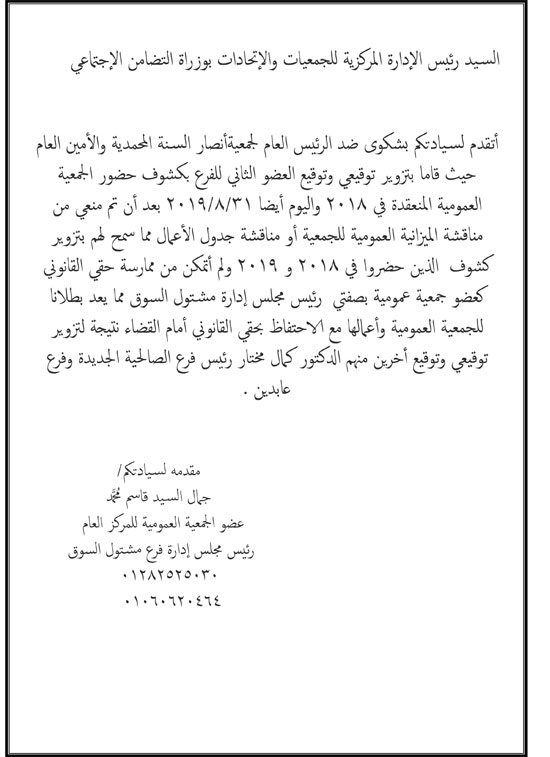 السيد رئيس الإدارة المركزية للجمعيات والإتحادات بوزراة التضامن الإجتماعي
أتقدم لسيادتكم بشكوى ضد الرئيس العام لجمعيةأنصار السنة المحمدية والأمين العام
حيث قاما بتزوير توقيعي وتوقيع العضو الثاني للفرع بكشوف حضور الجمعية
العمومية المنعقدة في ٢٠١٨ واليوم أيضا ٢٠١٩/٨/٣١ بعد أن تم منعي من
مناقشة الميزانية العمومية للجمعية أو مناقشة جدول الأعمال مما سمح لهم بتزوير
كشوف الذين حضروا في ٢٠١٨ و ٢٠١٩ ولم أتمكن من ممارسة حقي القانوني
كعضو جمعية عمومية بصفتي رئيس مجلس إدارة مشتول السوق مما يعد بطلانا
للجمعية العمومية وأعمالها مع الاحتفاظ بحقي القانوني أمام القضاء نتيجة لتزوير
توقيعي وتوقيع أخرين منهم الدكتور كمال مختار رئيس فرع الصالحية الجديدة وفرع
عابدين .
مقدمه لسيادتكم/
جمال السيد قاسم مُحمَّد
عضو الجمعية العمومية للمركز العام
رئيس مجلس إدارة فرع مشتول السوق
٠١٢٨٢٥٢٥٠٣٠
٠١٠٦٠٦٢٠٤٦٤